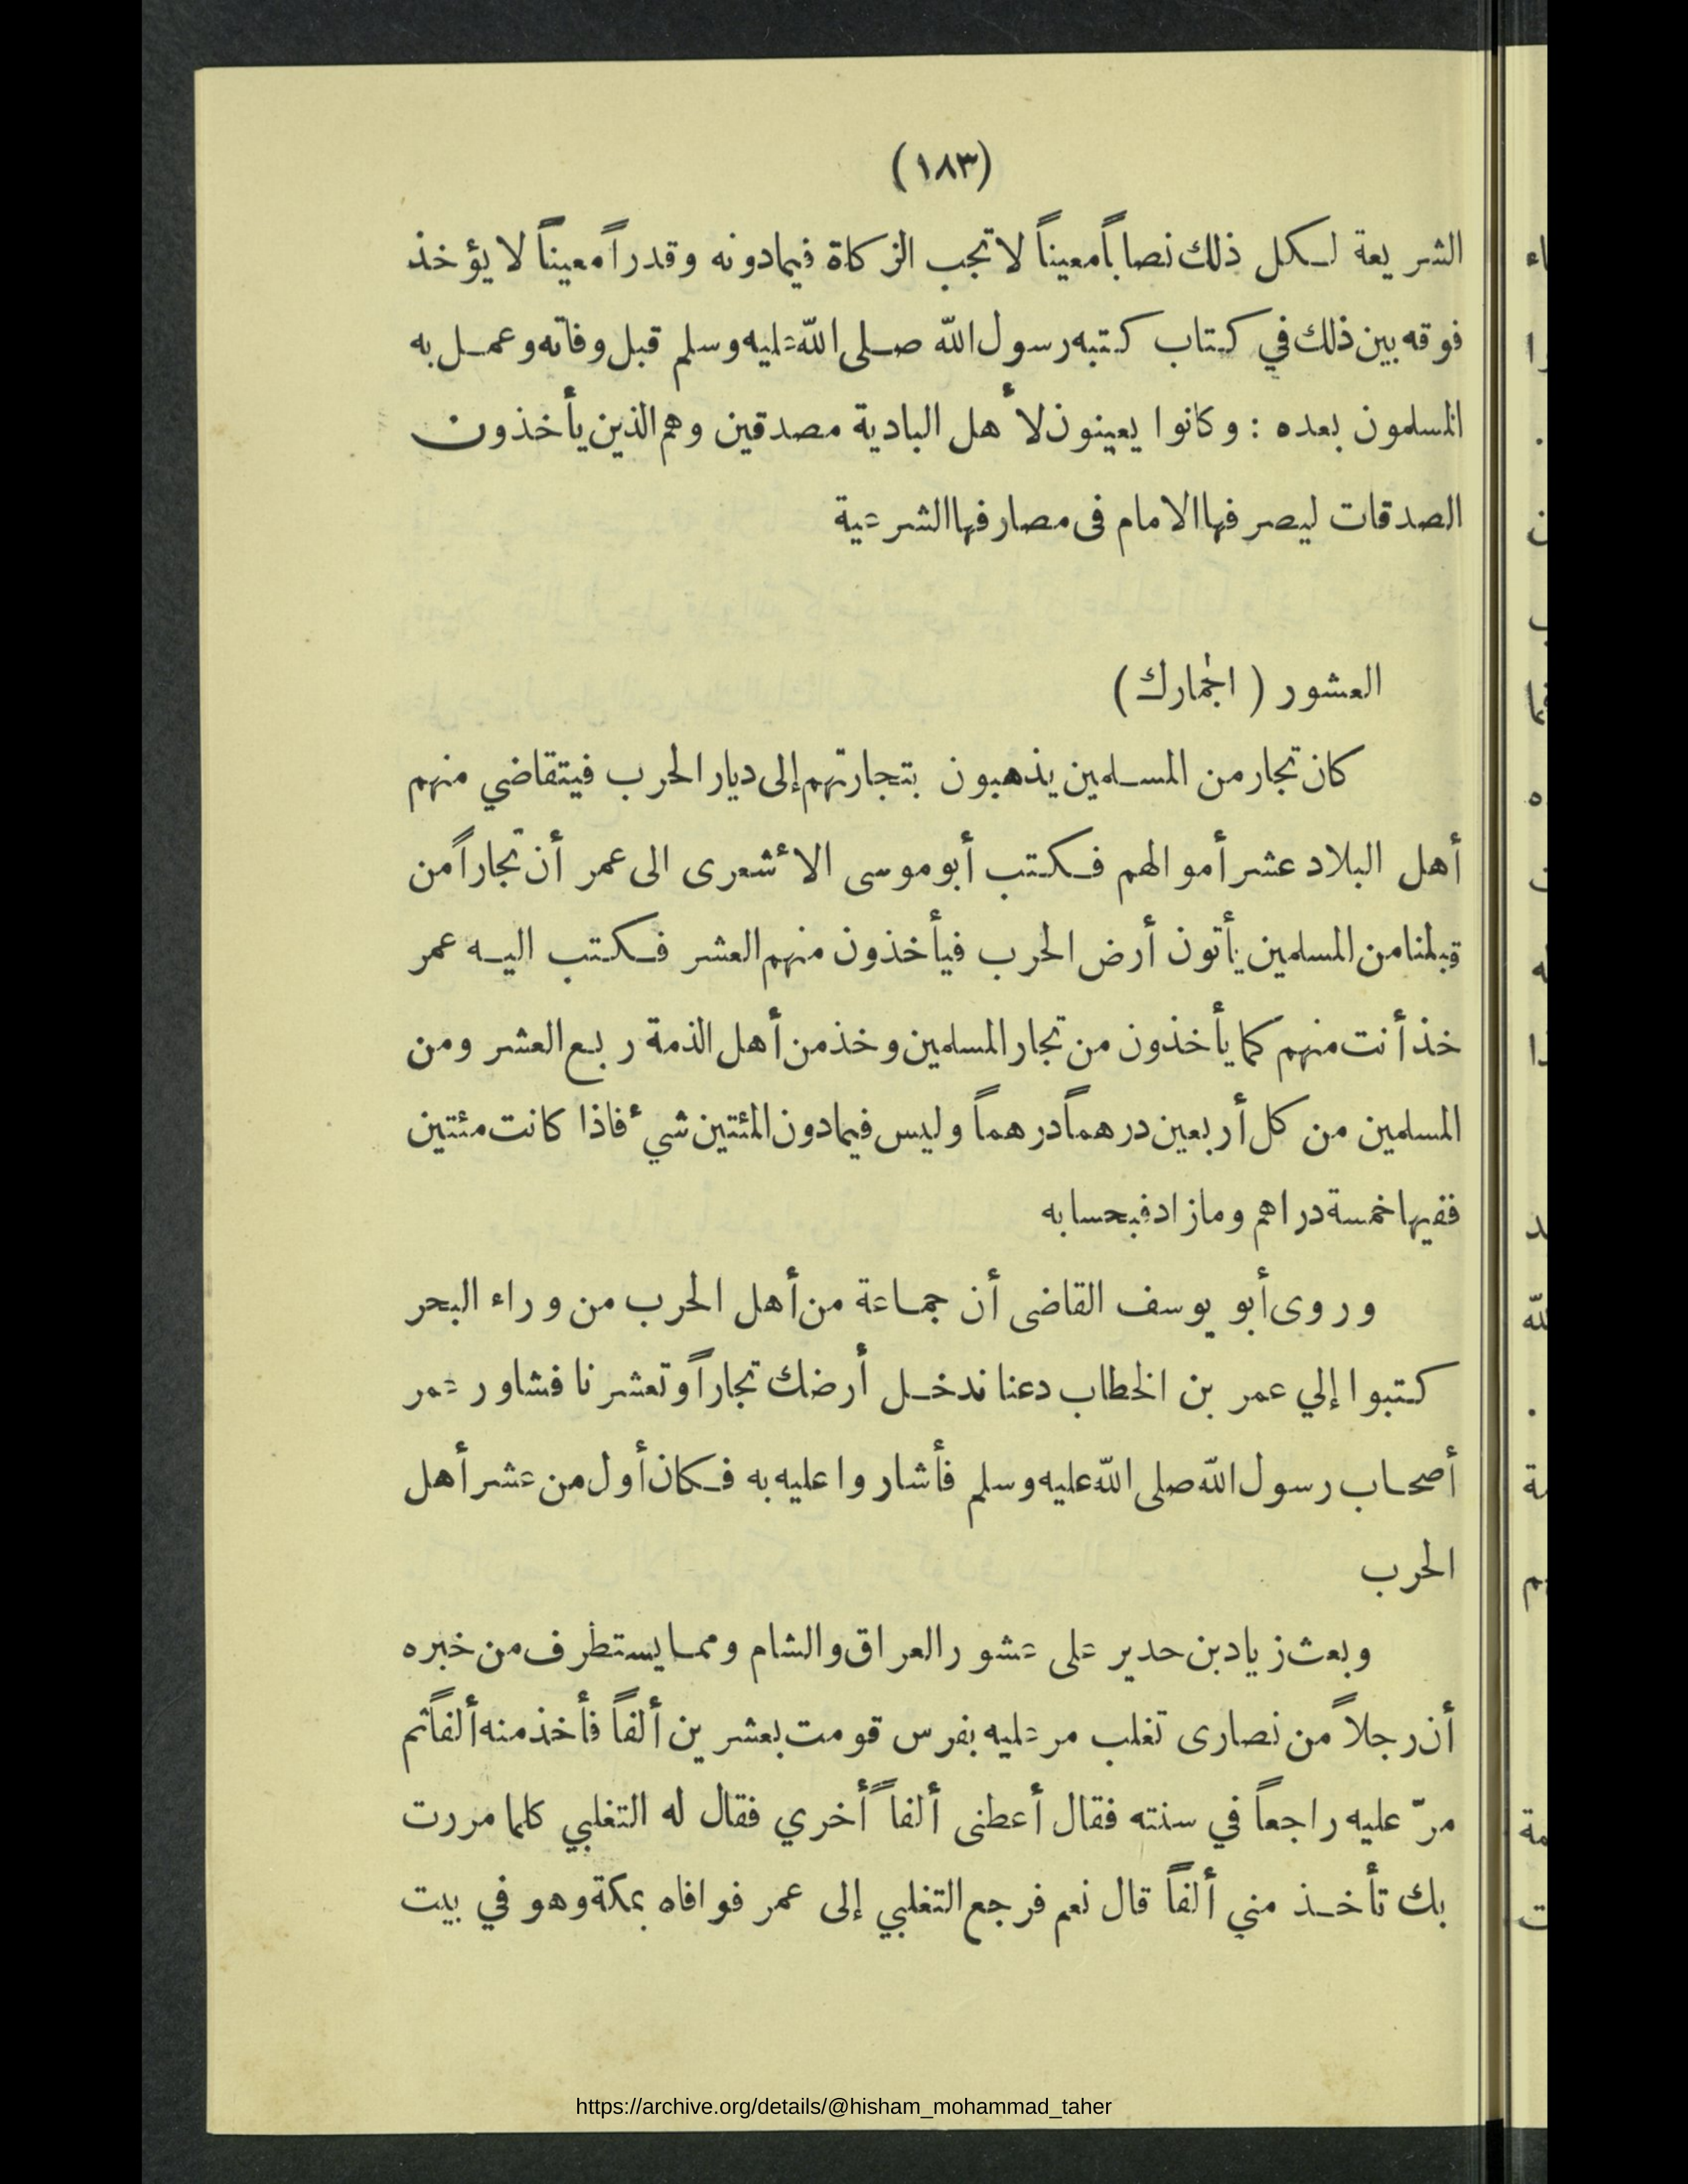 (١٨٣)
الشريعة لكل ذلك نصاباً معيناً لا تجب الزكاة فيما دونه وقدراً معيناً لا يؤخذ
فوقه بين ذلك في كتاب كتبه رسول الله صلى الله عليه وسلم قبل وفاته وعمل به
المسلمون بعده : وكانوا يعينون لأهل البادية مصدقين وهم الذين يأخذون
الصدقات ليصرفها الامام فى مصارفها الشرعية
العشور ( الجمارك )
كان تجار من المسلمين يذهبون بتجارتهم إلى ديار الحرب فيتقاضي منهم
أهل البلاد عشر أموالهم فكتب أبو موسى الأشعرى الى عمر أن تجاراً من
قبلنا من المسلمين يأتون أرض الحرب فيأخذون منهم العشر فكتب اليه عمر
خذ أنت منهم كما يأخذون من تجار المسلمين وخذ من أهل الذمة ربع العشر ومن
المسلمين من كل أربعين درهماً درهماً وليس فيما دون المئتين شيء فاذا كانت مئتين
ففيها خمسة دراهم وما زاد فبحسابه
وروى أبو يوسف القاضى أن جماعة من أهل الحرب من وراء البحر
كتبوا إلي عمر بن الخطاب دعنا ندخل أرضك تجاراً وتعشرنا فشاور عمر
أصحاب رسول الله صلى الله عليه وسلم فأشاروا عليه به فكان أول من عشر أهل
الحرب
وبعث زياد بن حدير على عشور العراق والشام ومما يستطرف من خبره
أن رجلاً من نصارى تغلب مر عليه بفرس قومت بعشرين ألفاً فأخذ منه ألفاً ثم
مرّ عليه راجعاً في سنته فقال أعطنى ألفاً أخري فقال له التغلبي كلما مررت
بك تأخذ مني ألفاً قال نعم فرجع التغلبي إلى عمر فوافاه بمكة وهو في بيت
https://archive.org/details/@hisham_mohammad_taher